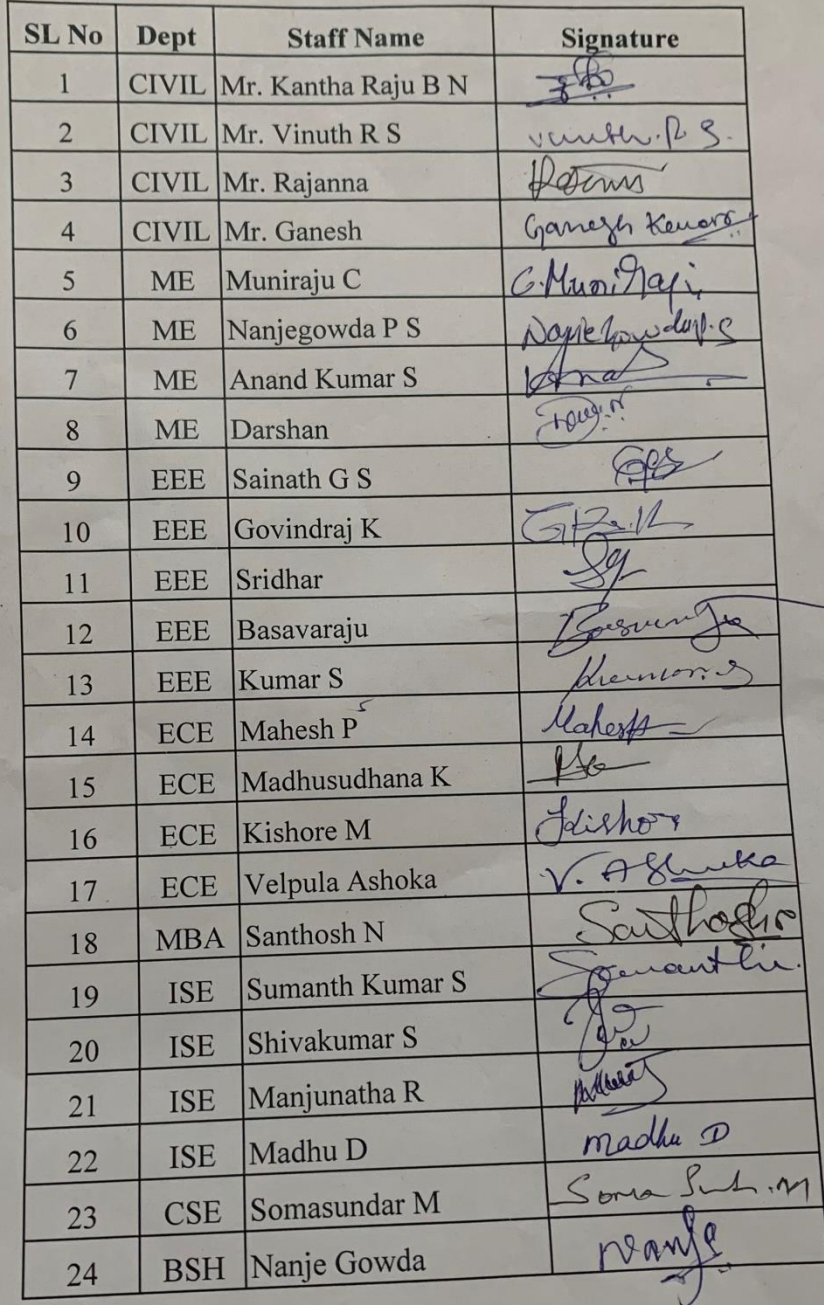 SL No Dept Staff Name Signature
1 CIVIL Mr. Kantha Raju B N
2 CIVIL Mr. Vinuth R S Vinuth. R S.
3 CIVIL Mr. Rajanna
4 CIVIL Mr. Ganesh Ganesh Kumar
5 ME Muniraju C C. Muniraju
6 ME Nanjegowda P S Nanjegowda P.S
7 ME Anand Kumar S
8 ME Darshan
9 EEE Sainath G S
10 EEE Govindraj K
11 EEE Sridhar
12 EEE Basavaraju
13 EEE Kumar S Kumar.S
14 ECE Mahesh P S Mahesh
15 ECE Madhusudhana K
16 ECE Kishore M Kishor
17 ECE Velpula Ashoka V. Ashoka
18 MBA Santhosh N Santhosh
19 ISE Sumanth Kumar S
20 ISE Shivakumar S
21 ISE Manjunatha R
22 ISE Madhu D madhu D
23 CSE Somasundar M Soma
24 BSH Nanje Gowda Nanje